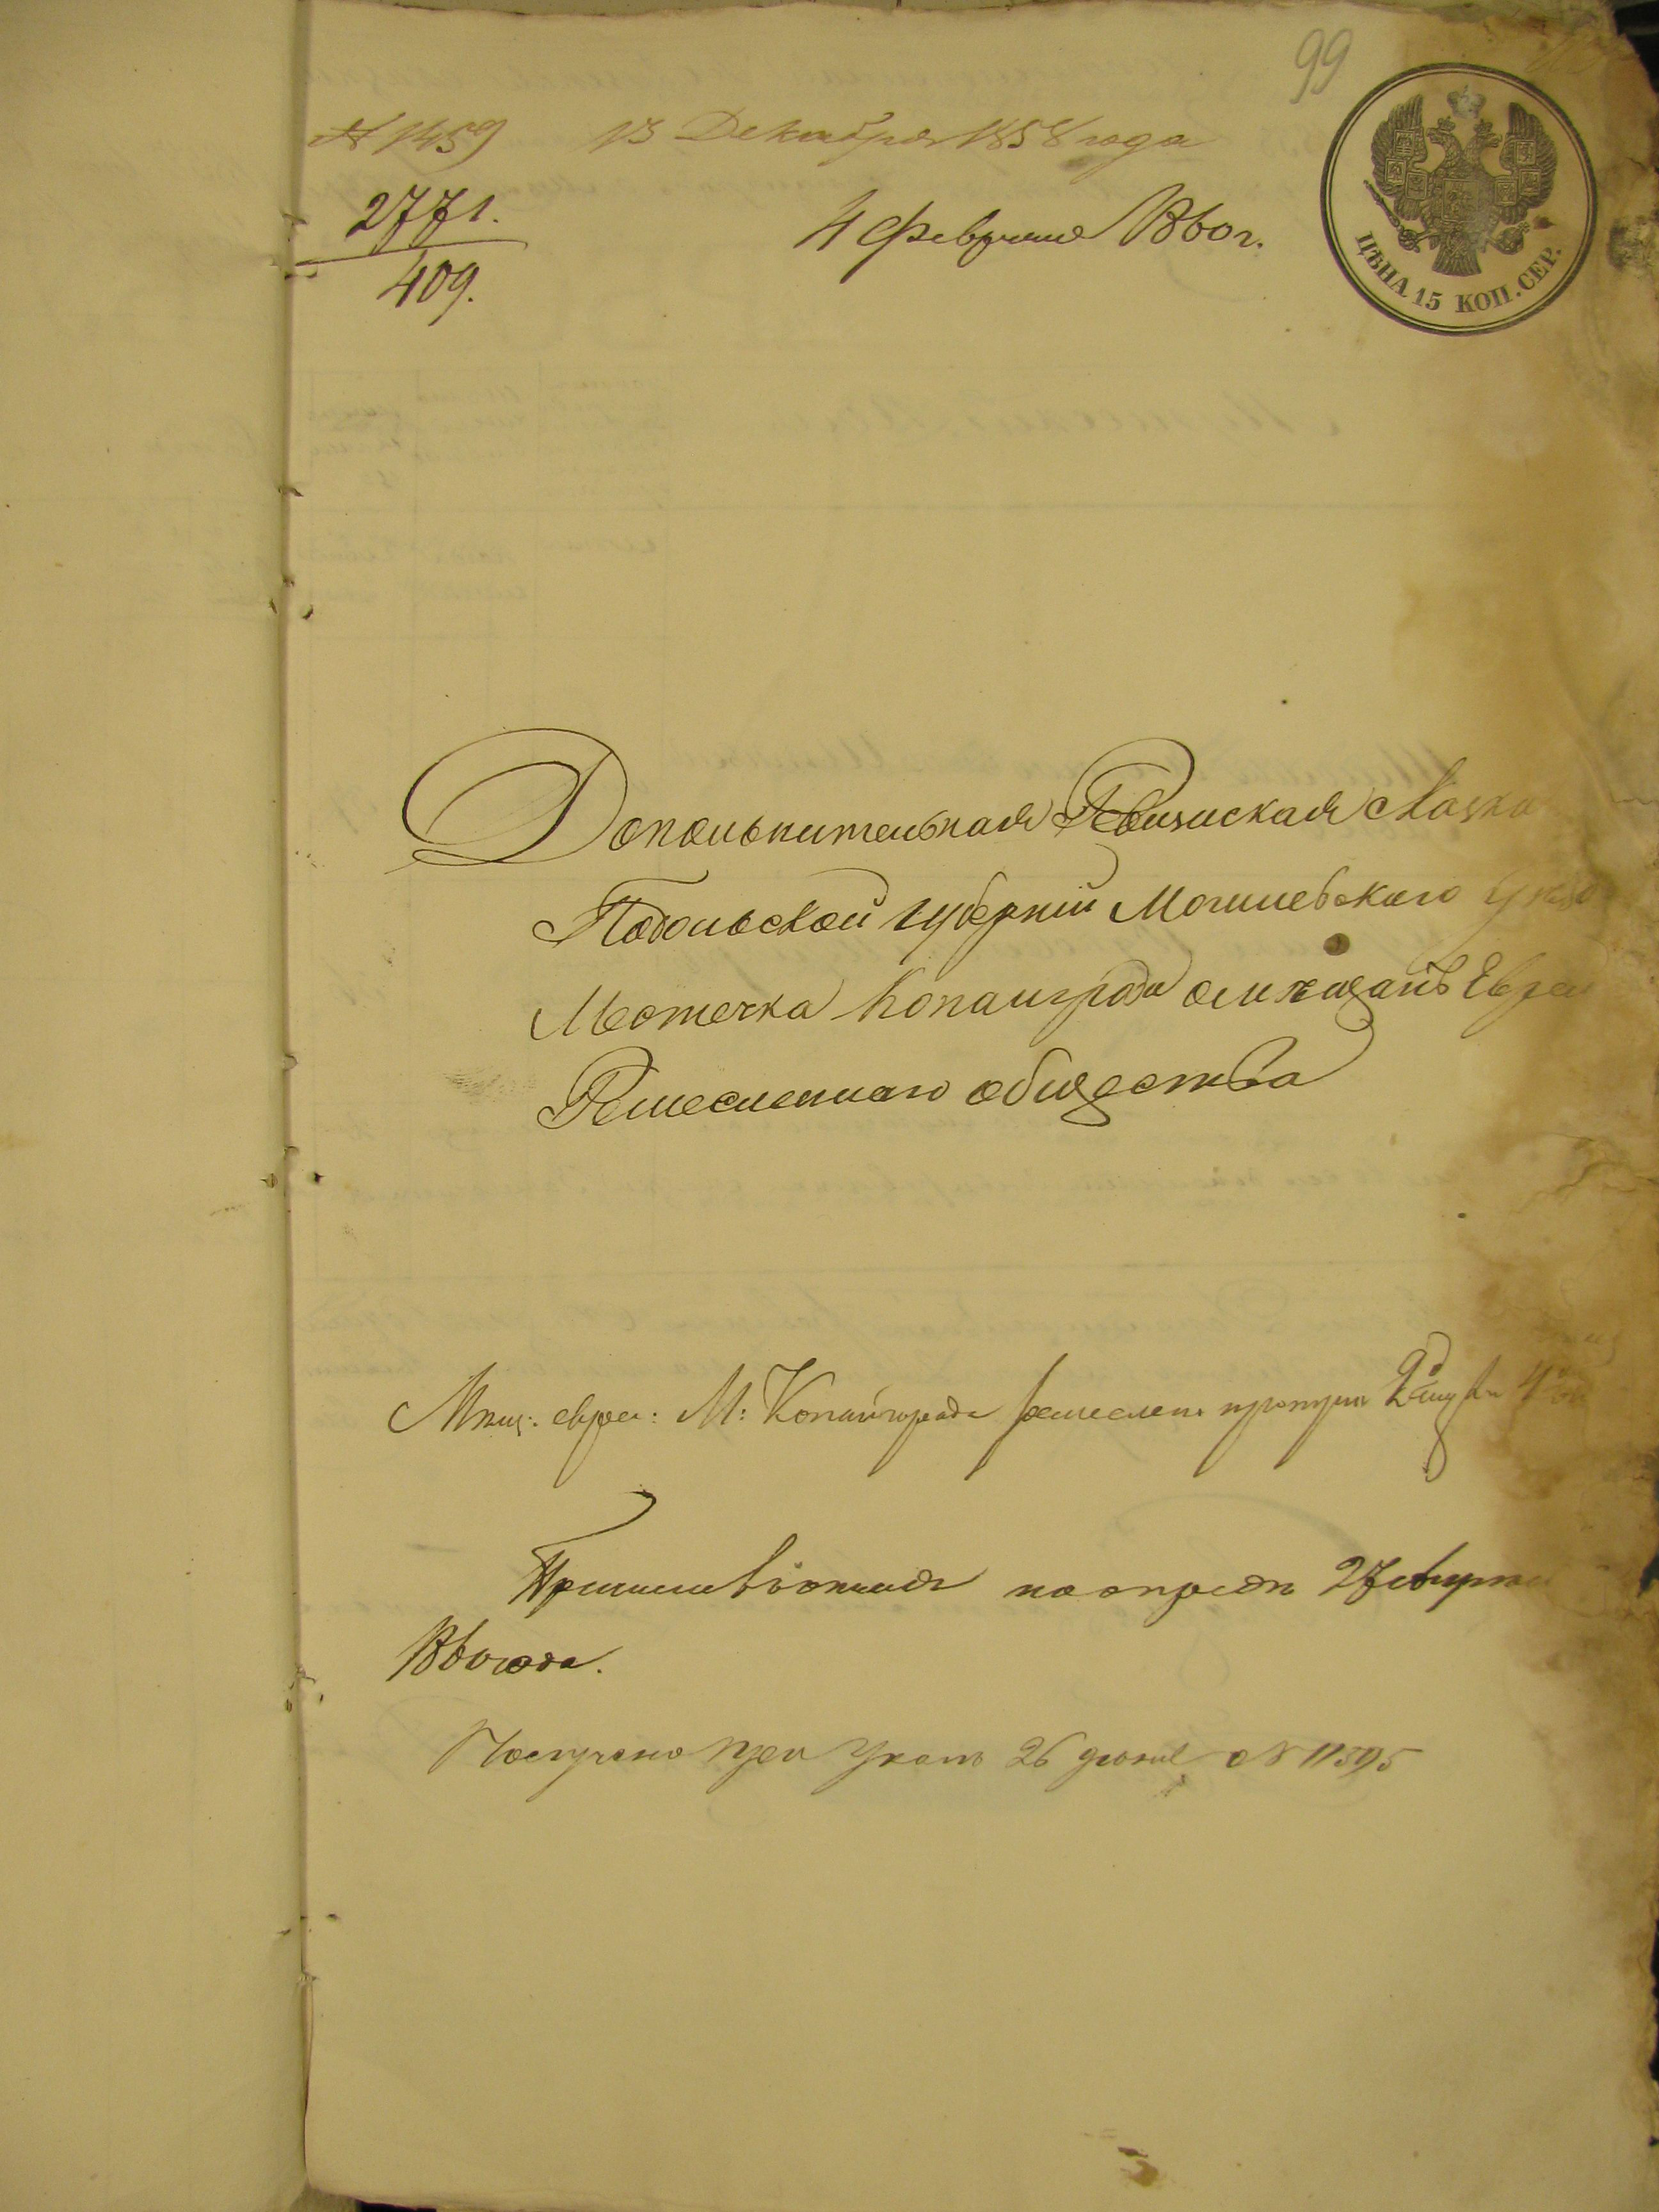 99
№ 1459 13 Декабря 1858 года
2771.
409.
4 февраля 1860 г.
ЦѢНА 15 КОП. СЕР.
Дополнительная Ревизская Сказка
Подольской губерніи Могилевскаго Уѣзда
Местечка Копайгрода о мѣщанъ Евреи
Ремесленнаго общества
Мѣщ: евреи: М: Копайгорода ремеслен:
по опредѣ 2 февраля
1860 года.
Получено при Указѣ 26 Июня № 11395